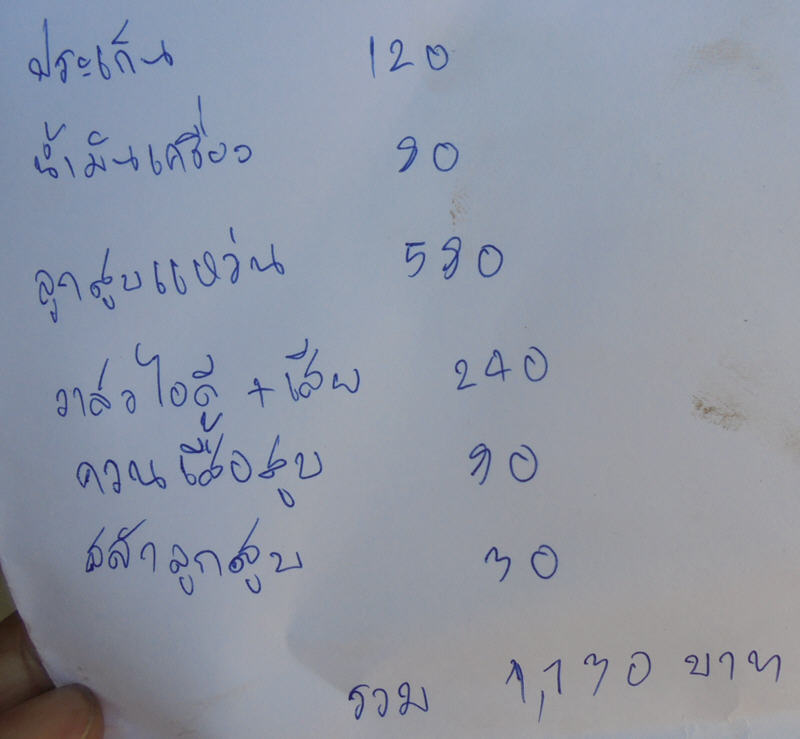 ประเก็น 120
น้ำมันเครื่อง 80
ลูกสูบแหว่น 580
วาล์วไอดี +เสีย 240
ควนเสือสูบ 80
สลักลูกสูบ 30
รวม 1,130 บาท